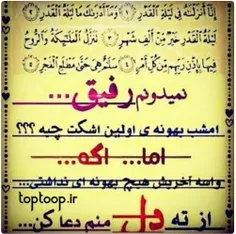 إِنَّا أَنْزَلْنَاهُ فِي لَيْلَةِ الْقَدْرِ ﴿١﴾ وَمَا أَدْرَاكَ مَا لَيْلَةُ الْقَدْرِ ﴿٢﴾
لَيْلَةُ الْقَدْرِ خَيْرٌ مِنْ أَلْفِ شَهْرٍ ﴿٣﴾ تَنَزَّلُ الْمَلَائِكَةُ وَالرُّوحُ
فِيهَا بِإِذْنِ رَبِّهِمْ مِنْ كُلِّ أَمْرٍ ﴿٤﴾ سَلَامٌ هِيَ حَتَّى مَطْلَعِ الْفَجْرِ
نمیدونم رفیق...
امشب بهونه ی اولین اشکت چیه ؟؟؟
اما... اگه...
واسه آخریش هیچ بهونه ای نداشتی...
toptoop.ir
از ته دل منم دعا کن...